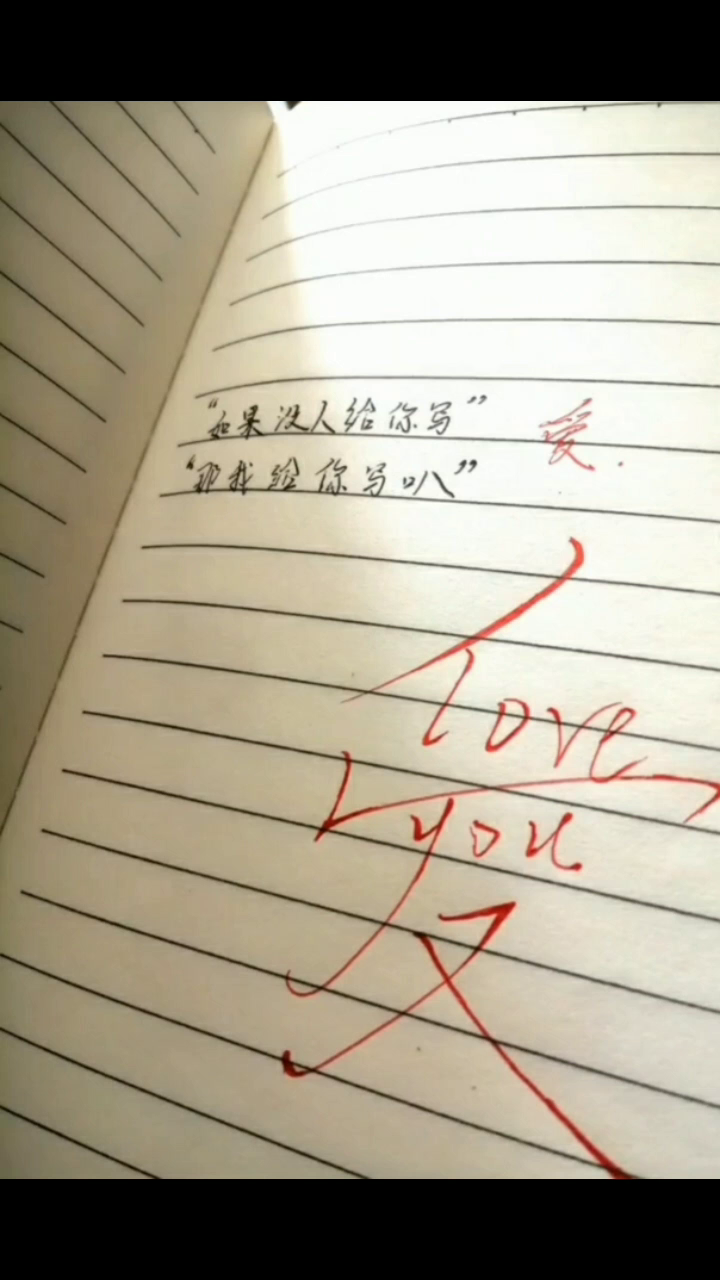 “如果没人给你写” 爱.
“那我给你写叭”
love
you